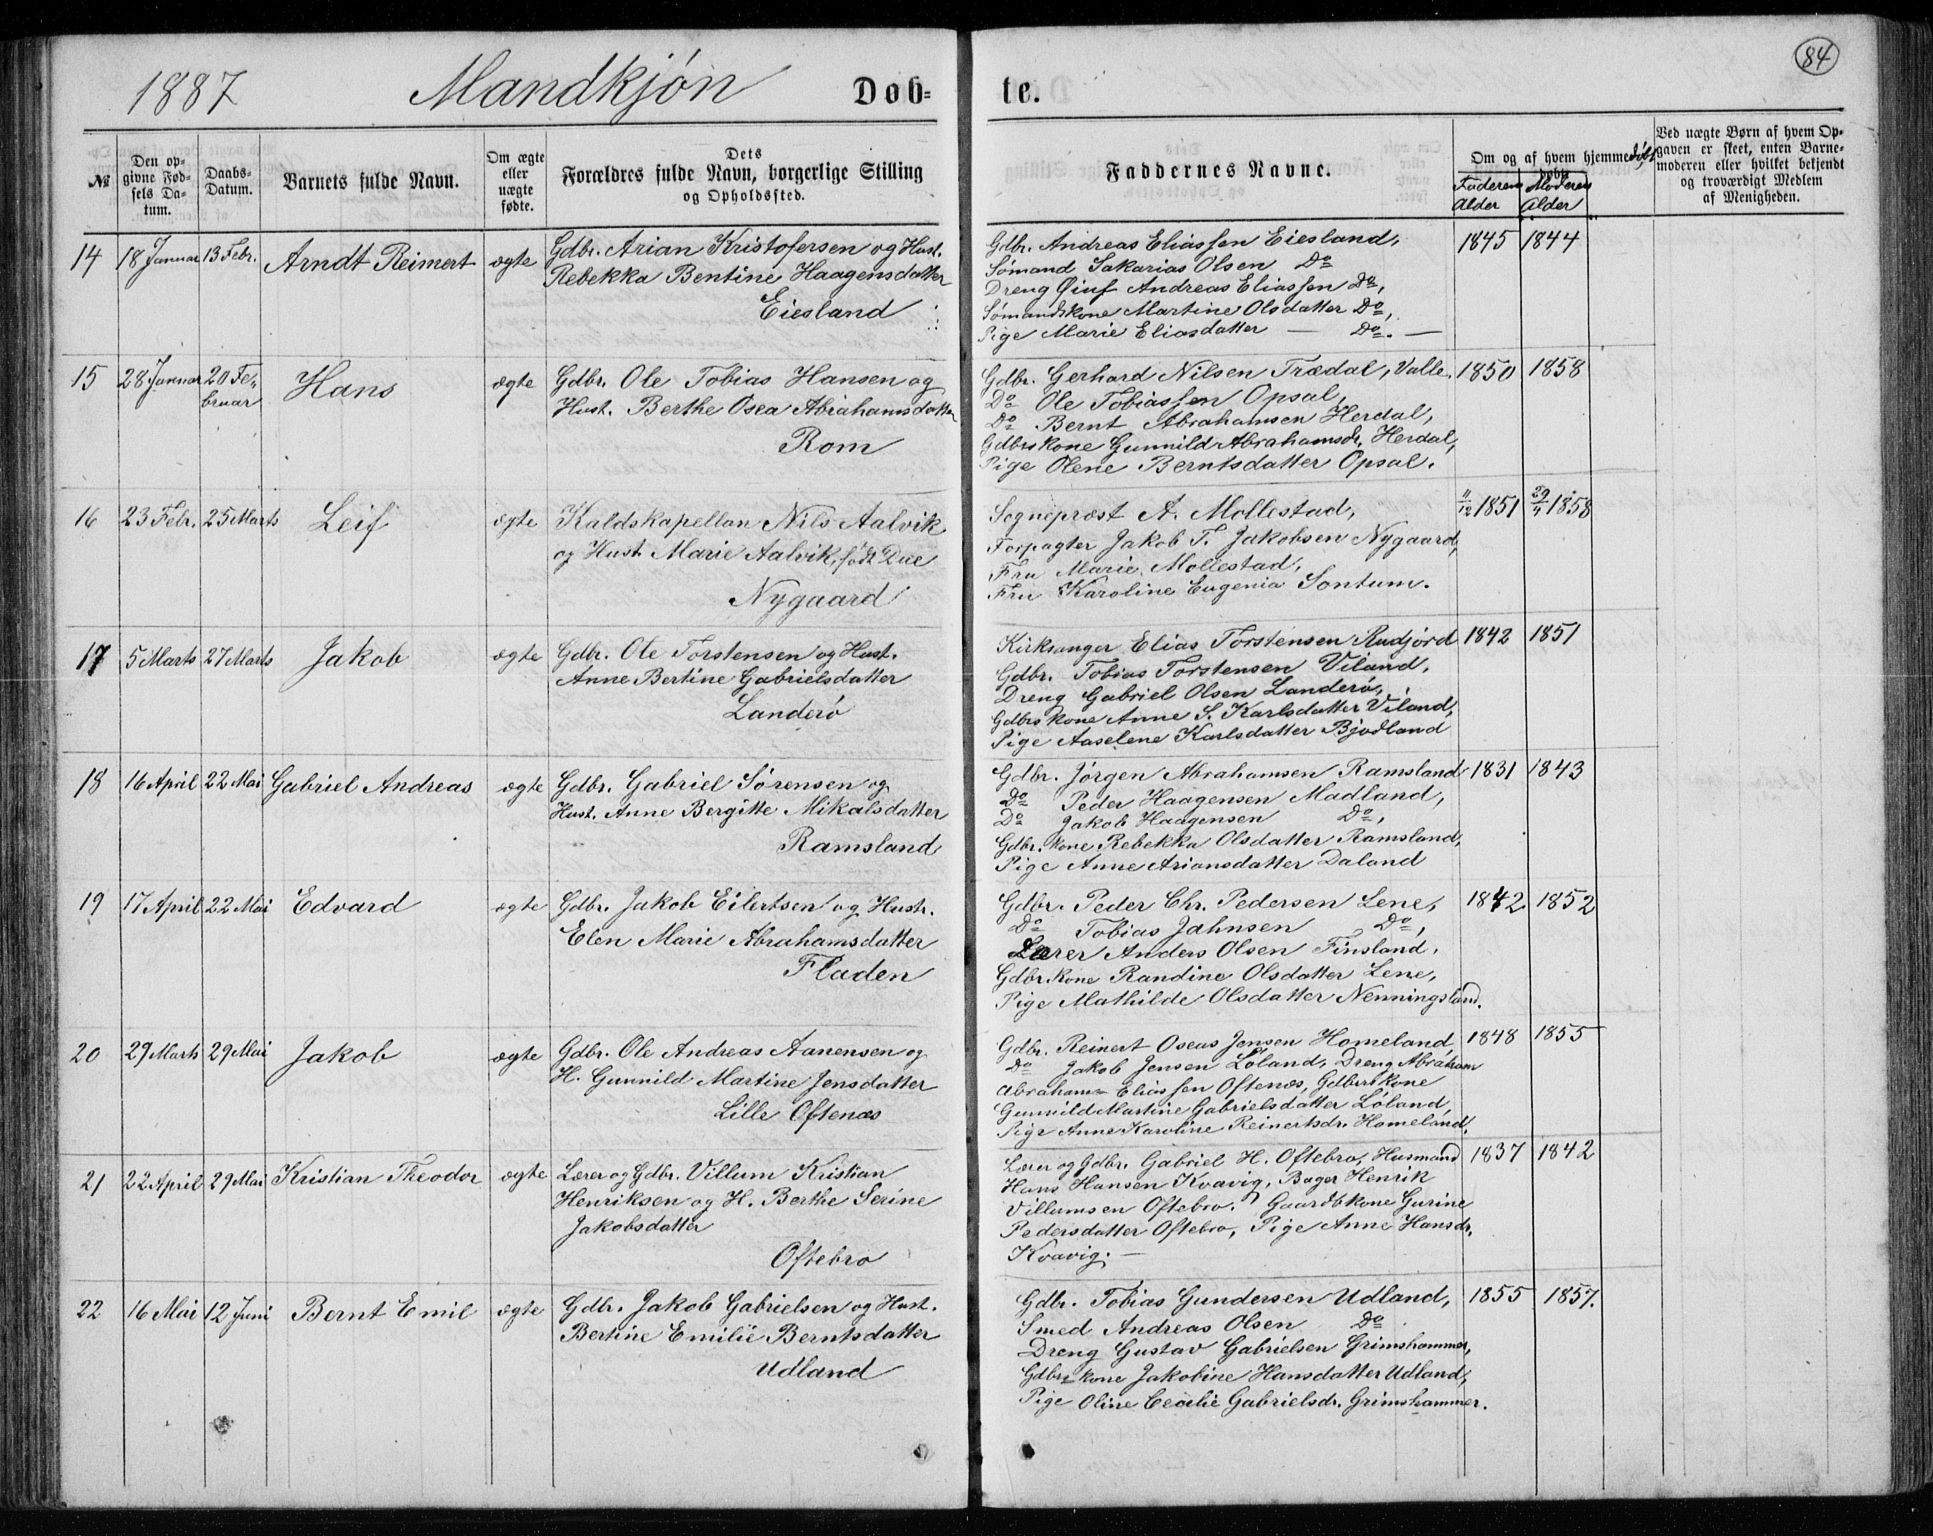 84
1887 Mandkjøn Døb=te.
№
Den opgivne Fødsels Datum.
Daabs-Datum.
Barnets fulde Navn.
Om ægte eller uægte fødte.
Dets Forældres fulde Navn, borgerlige Stilling og Opholdssted.
Faddernes Navne.
Om og af hvem hjemmedøbt
Faderens Alder
Moderens Alder
Ved uægte Børn af hvem Opgaven er skeet, enten Barnemoderen eller hvilket bekjendt og troværdigt Medlem af Menigheden.
14 18 Januar 13 Febr. Arndt Reimert ægte
Gdbr. Arian Kristofersen og Hust.
Rebekka Bentine Haagensdatter
Eiesland
Gdbr. Andreas Eliassen Eiesland,
Sømand Sakarias Olsen Do
Dreng Øiuf Andreas Eliassen Do,
Sømandskone Martine Olsdatter Do,
Pige Marie Eliasdatter — Do. —
1845 1844
15 28 Januar 20 Februar Hans ægte
Gdbr. Ole Tobias Hansen og
Hust. Berthe Osea Abrahamsdatter
Rom
Gdbr. Gerhard Nilsen Trædal, Valle.
Do Ole Tobiassen Opsal,
Do Bernt Abrahamsen Herdal,
Gdbrskone Gunnild Abrahamsdr. Herdal,
Pige Olene Berntsdatter Opsal.
1850 1858
16 23 Febr. 25 Marts Leif ægte
Kaldskapellan Nils Aalvik
og Hust. Marie Aalvik, født Due
Nygaard
Sognepræst A. Mollestad,
Forpagter Jakob T. Jakobsen Nygaard,
Fru Marie Mollestad,
Fru Karoline Eugenia Sontum.
11/12 1851 29/4 1858
17 5 Marts 27 Marts Jakob ægte
Gdbr. Ole Torstensen og Hust.
Anne Bertine Gabrielsdatter
Landerø
Kirksanger Elias Torstensen Rudjord
Gdbr. Tobias Torstensen Viland,
Dreng Gabriel Olsen Landerø,
Gdbrs kone Anne S. Karlsdatter Viland,
Pige Aaselene Karlsdatter Bjodland
1842 1851
18 16 April 22 Mai Gabriel Andreas ægte
Gdbr. Gabriel Sørensen og
Hust. Anne Bergitte Mikalsdatter
Ramsland
Gdbr. Jørgen Abrahamsen Ramsland
Do Peder Haagensen Madland,
Do Jakob Haagensen Do,
Gdbr. kone Rebekka Olsdatter Ramsland,
Pige Anne Ariansdatter Daland
1831 1843
19 17 April 22 Mai Edvard ægte
Gdbr. Jakob Eilertsen og Hustr.
Elen Marie Abrahamsdatter
Fladen
Gdbr. Peder Chr. Pedersen Lene,
Do Tobias Jahnsen Do,
Lærer Anders Olsen Finsland,
Gdbr. kone Randine Olsdatter Lene,
Pige Mathilde Olsdatter Nenningsland.
1842 1852
20 29 Marts 29 Mai Jakob ægte
Gdbr. Ole Andreas Aanensen og
H. Gunnild Martine Jensdatter
Lille Oftenæs
Gdbr. Reinert Oseas Jensen Homeland
Do Jakob Jensen Løland, Dreng Abraham
Abraham= Eliassen Oftenæs, Gdbrs kone
Gunvild Martine Gabrielsdatter Løland,
Pige Anne Karoline Reinertsdr. Homeland.
1848 1855
21 22 April 29 Mai Kristian Theodor ægte
Lærer og Gdbr. Villum Kristian
Henriksen og H. Berthe Serine
Jakobsdatter
Oftebro
Lærer og Gdbr. Gabriel H. Oftebro, Husmand
Hans Hansen Kvavig, Bager Henrik
Villumsen Oftebro. Gaardbkone Gurine
Pedersdatter Oftebro, Pige Anne Hansdr,
Kvavig. —
1837 1842
22 16 Mai 12 Juni Bernt Emil ægte
Gdbr. Jakob Gabrielsen og Hust.
Bertine Emilie Berntsdatter
Udland
Gdbr. Tobias Gundersen Udland,
Smed Andreas Olsen Do
Dreng Gustav Gabrielsen Grimshammer,
Gdbrs= kone Jakobine Hansdatter Udland,
Pige Oline Cecilie Gabrielsdr. Grimshammer.
1855 1857.